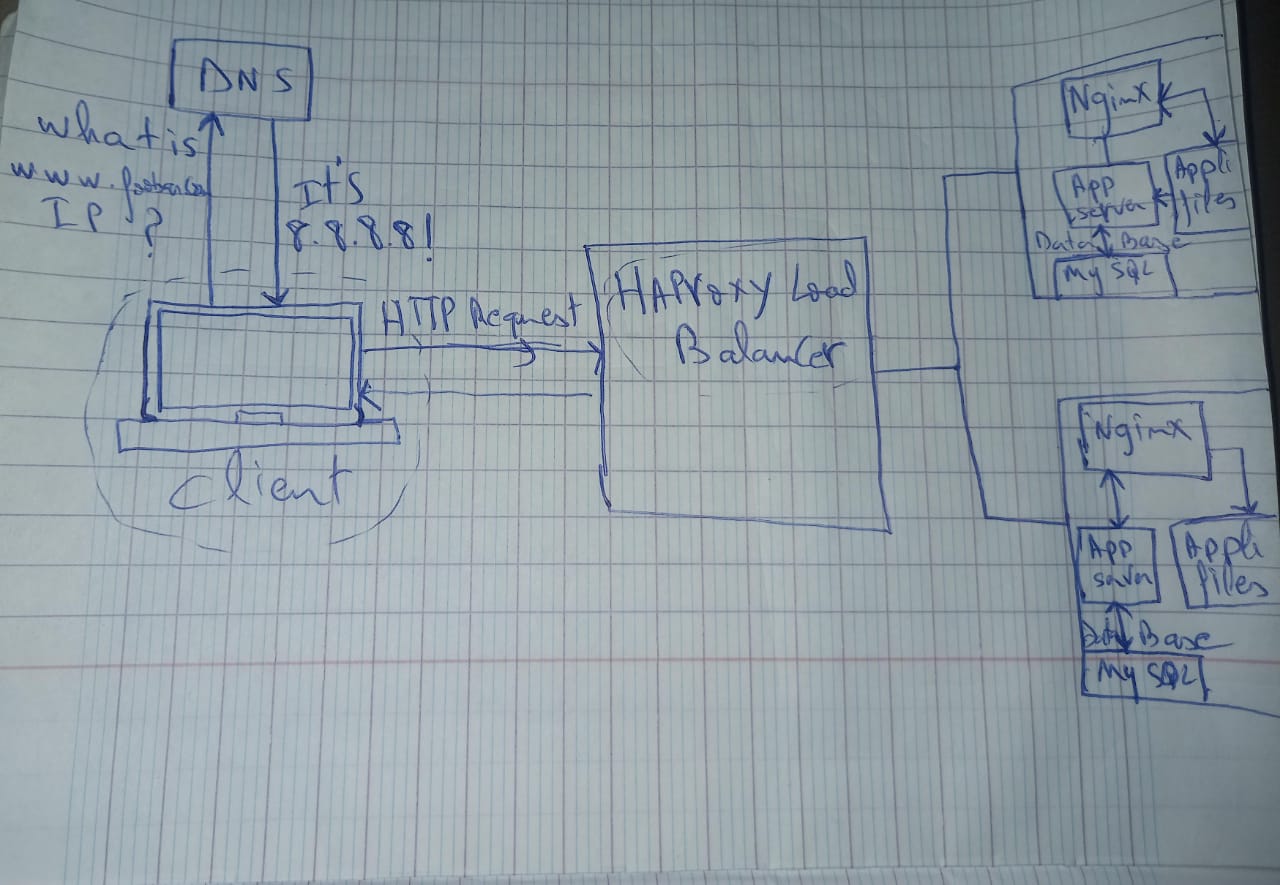 DNS
What is
www.foobar.com
IP ?
It's
8.8.8.8!
HTTP Request
Client
HAProxy Load
Balancer
Nginx
App
server
Appli
files
Data Base
My SQL
Nginx
App
server
Appli
files
Data Base
My SQL